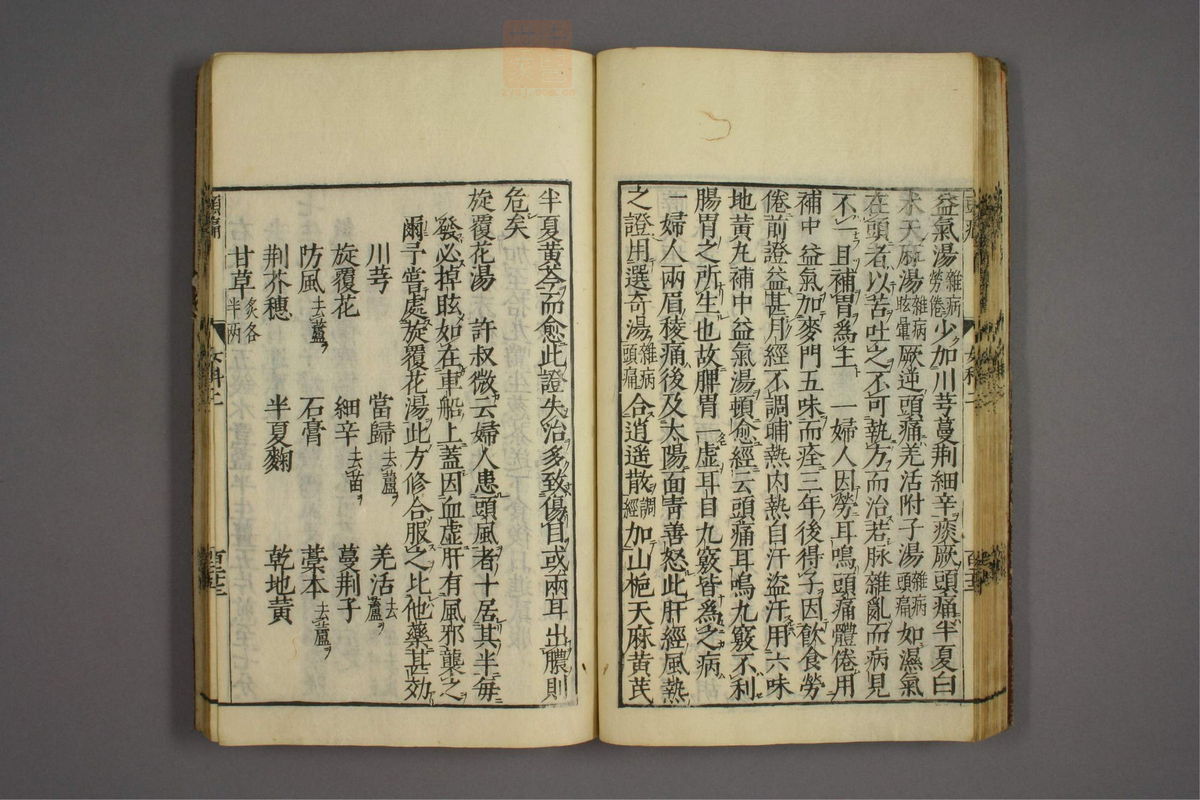 益氣湯雜病勞倦少加川芎蔓荆細辛痰厥頭痛半夏白
术天麻湯雜病眩暈厥逆頭痛羌活附子湯雜病頭痛如濕氣
在頭者以苦吐之不可執方而治若脉雜亂而病見
不一且補胃爲主 一婦人因勞耳鳴頭痛體倦用
補中益氣加麥門五味而痊三年後得子因飮食勞
倦前證益甚月經不調晡熱内熱自汗盗汗用六味
地黄丸補中益氣湯頓愈經云頭痛耳鳴九竅不利
腸胃之所生也故脾胃一虛耳目九竅皆爲之病
一婦人兩眉稜痛後及太陽面靑善怒此肝經風熱
之證用選奇湯雜病頭痛合逍遥散調經加山栀天麻黄芪
半夏黄芩而愈此證失治多致傷目或兩耳出膿則
危矣
旋覆花湯 許叔微云婦人患頭風者十居其半每
發必掉眩如在車船上蓋因血虛肝有風邪襲之
爾予嘗處旋覆花湯此方修合服之比他藥甚効
川芎 當歸去蘆 羌活去蘆
旋覆花 細辛去苗 蔓荆子
防風去蘆 石膏 藁本去蘆
荆芥穗 半夏麴 乾地黄
甘草炙各半两
女科二